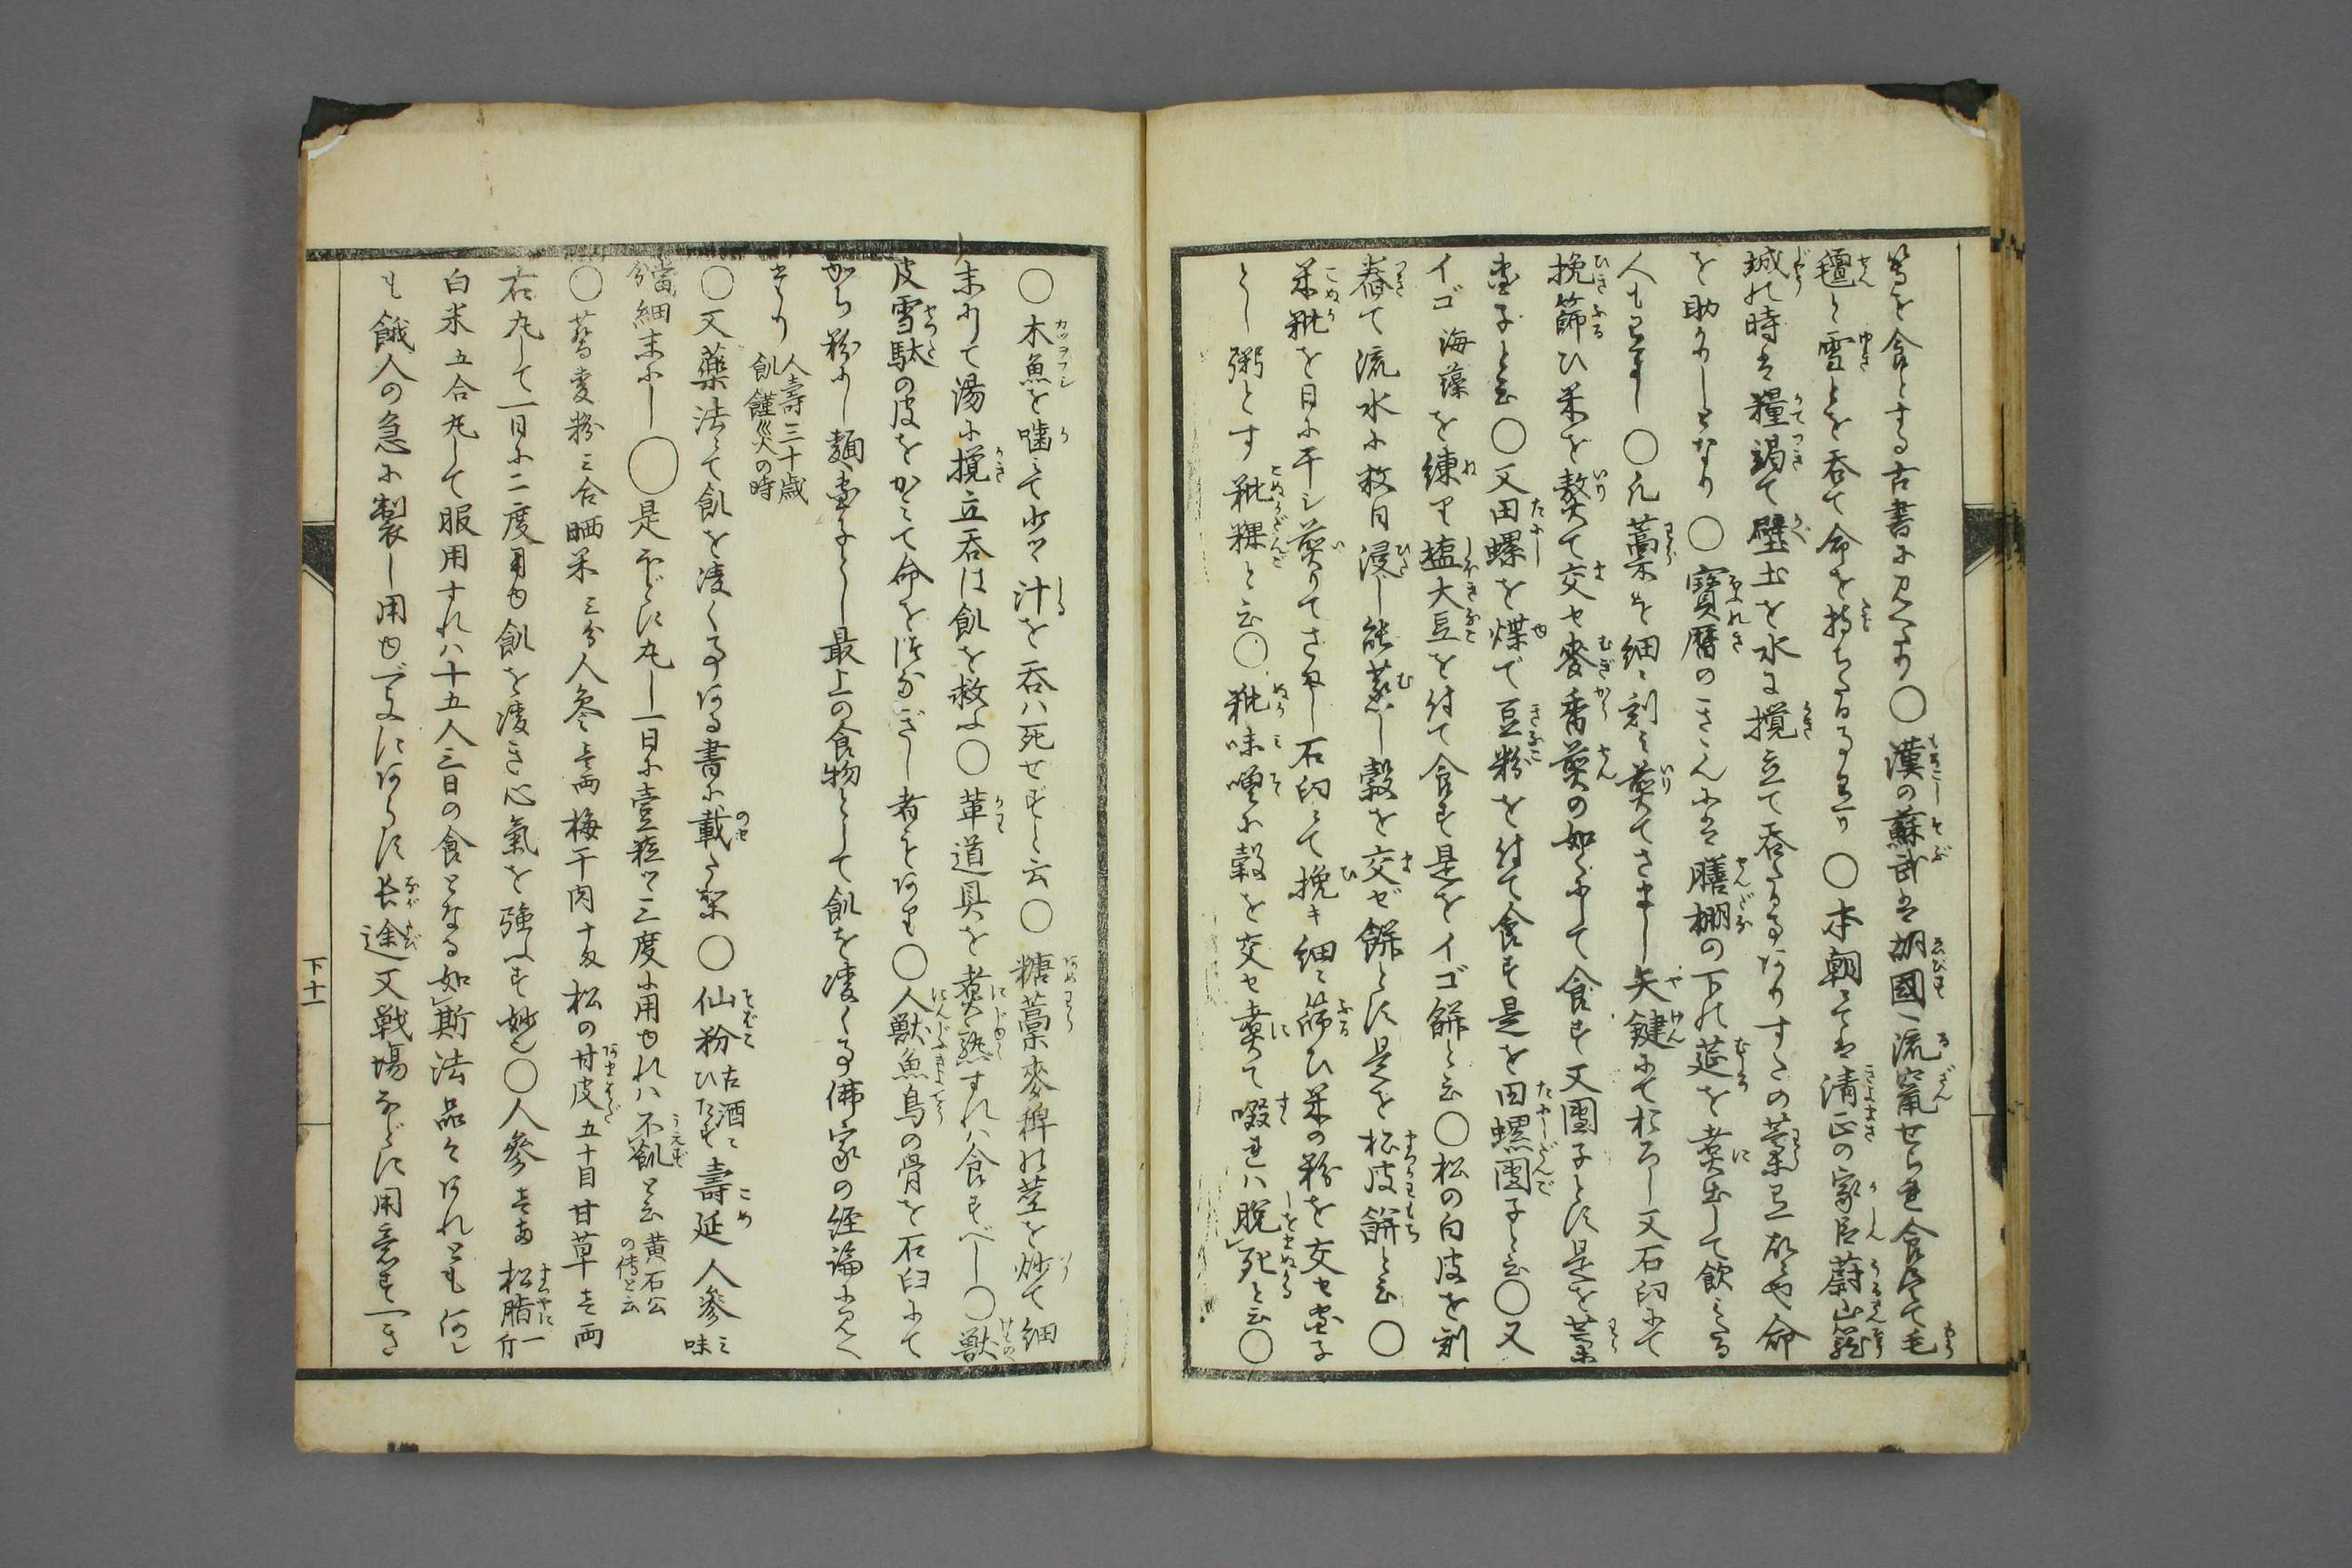 等を食とする古書に見へたり〇漢の蘇武は胡國へ流竄せられ食尽て毛
氊と雪とを呑て命を持ちたる事有り〇本朝にては清正の家臣蔚山籠
城の時は糧竭て壁土を水に攪立て呑たる事ありすたの藁有故也命
を助かりしとなり〇寳暦のききんには膳棚の下の莚を煮出して飲たる
人も有よし〇凡藁を細く刻み煎てさまし矢鍵にて杉ろし又石臼にて
挽篩ひ米を熬て交セ麥香煎の如くにして食す又團子とす是を藁
團子と云〇又田螺を煠で豆粉を付て食す是を田螺團子と云〇又
イゴ海藻を練りて塩大豆を付て食す是をイゴ餅と云〇松の白皮を剥
舂て流水に数日浸し能蒸し穀を交ぜ餅とす是を松皮餅と云〇
米粃を日に干シ煎りてさまし石臼にて挽キ細く篩ひ米の粉を交セ團子
とし粥とす粃粿と云〇粃味噌に穀を交セ煮て啜れハ脱死と云〇
〇木魚を噛みて少々汁を呑ハ死せずと云〇糖藁麥稗の莖を炒て細
末にて湯に攪立呑は飢を救ふ〇革道具を煮熟すれハ食すべし〇獣
皮雪駄の皮をかみて命をつなぎし者もあり〇人獣魚鳥の骨を石臼にて
から粉にし麺團子とし最上の食物として飢を凌く事佛家の経論に見へ
たり 人壽三十歳飢饉災の時
〇又藥法にて飢を凌く事ある書に載たり〇仙粉古酒にひたす壽延人參三味
等分細末にし〇是ほどに丸し一日に壹粒ツヽ三度に用ゆれハ不飢と云黄石公の傳と云
〇蕎麦粉三合晒米三分人參壱両梅干肉十匁松の甘皮五十目甘草壱両
右丸して一日に二度用ゆ飢を凌き心氣を強ふす妙也〇人參壱両松脂一斤
白米五合丸して服用すれハ十五人三日の食となる如斯法品々あれとも何レ
も餓人の急に製し用ゆべきにあらす長途又戦場などに用意すべき
下十一